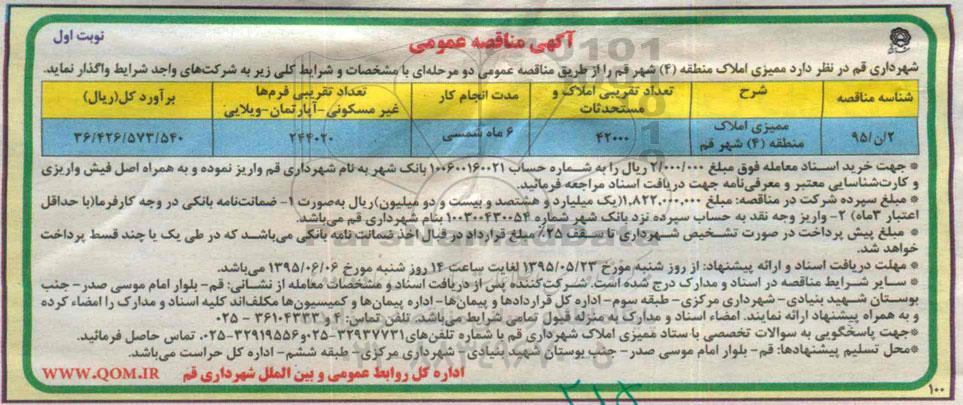 نوبت اول
آگهی مناقصه عمومی
شهرداری قم در نظر دارد ممیزی املاک منطقه (۴) شهر قم را از طریق مناقصه عمومی دو مرحله‌ای با مشخصات و شرایط کلی زیر به شرکت‌های واجد شرایط واگذار نماید.
شناسه مناقصه شرح تعداد تقریبی املاک و مستحدثات مدت انجام کار تعداد تقریبی فرم‌ها غیر مسکونی-آپارتمان-ویلایی برآورد کل(ریال)
۲/ن/۹۵ ممیزی املاک منطقه (۴) شهر قم ۴۲۰۰۰ ۶ ماه شمسی ۲۴۴۰۲۰ ۳۶/۴۲۶/۵۷۳/۵۴۰
* جهت خرید اسناد معامله فوق مبلغ ۲/۰۰۰/۰۰۰ ریال را به شماره حساب ۱۰۰۶۰۰۱۶۰۰۲۱ بانک شهر به نام شهرداری قم واریز نموده و به همراه اصل فیش واریزی
و کارت‌شناسایی معتبر و معرفی‌نامه جهت دریافت اسناد مراجعه فرمائید.
* مبلغ سپرده شرکت در مناقصه: مبلغ ۱,۸۲۲,۰۰۰,۰۰۰(یک میلیارد و هشتصد و بیست و دو میلیون)ریال به‌صورت ۱- ضمانت‌نامه بانکی در وجه کارفرما(با حداقل
اعتبار ۳ماه) ۲- واریز وجه نقد به حساب سپرده نزد بانک شهر شماره ۱۰۰۳۰۰۴۳۰۰۵۴ بنام شهرداری قم می‌باشد.
* مبلغ پیش پرداخت در صورت تشخیص شهرداری تا سقف ۲۵٪ مبلغ قرارداد در قبال اخذ ضمانت نامه بانکی می‌باشد که در طی یک یا چند قسط پرداخت
خواهد شد.
* مهلت دریافت اسناد و ارائه پیشنهاد: از روز شنبه مورخ ۱۳۹۵/۰۵/۲۳ لغایت ساعت ۱۴ روز شنبه مورخ ۱۳۹۵/۰۶/۰۶ می‌باشد.
* سایر شرایط مناقصه در اسناد و مدارک درج شده است. شرکت‌کننده پس از دریافت اسناد و مشخصات معامله از نشانی: قم- بلوار امام موسی صدر- جنب
بوستان شهید بنیادی- شهرداری مرکزی- طبقه سوم- اداره کل قراردادها و پیمان‌ها- اداره پیمان‌ها و کمیسیون‌ها مکلف‌اند کلیه اسناد و مدارک را امضاء کرده
و به همراه پیشنهاد ارائه نمایند. امضاء اسناد و مدارک به منزله قبول تمامی شرایط می‌باشد. تلفن تماس: ۴ و ۳۶۱۰۴۳۳۳ - ۰۲۵
*جهت پاسخگویی به سوالات تخصصی با ستاد ممیزی املاک شهرداری قم با شماره تلفن‌های ۳۲۹۳۷۷۳۱-۰۲۵و۳۲۹۱۹۵۵۶-۰۲۵، تماس حاصل فرمائید.
*محل تسلیم پیشنهادها: قم- بلوار امام موسی صدر- جنب بوستان شهید بنیادی- شهرداری مرکزی- طبقه ششم- اداره کل حراست می‌باشد.
اداره کل روابط عمومی و بین الملل شهرداری قم
WWW.QOM.IR
۱۰۰